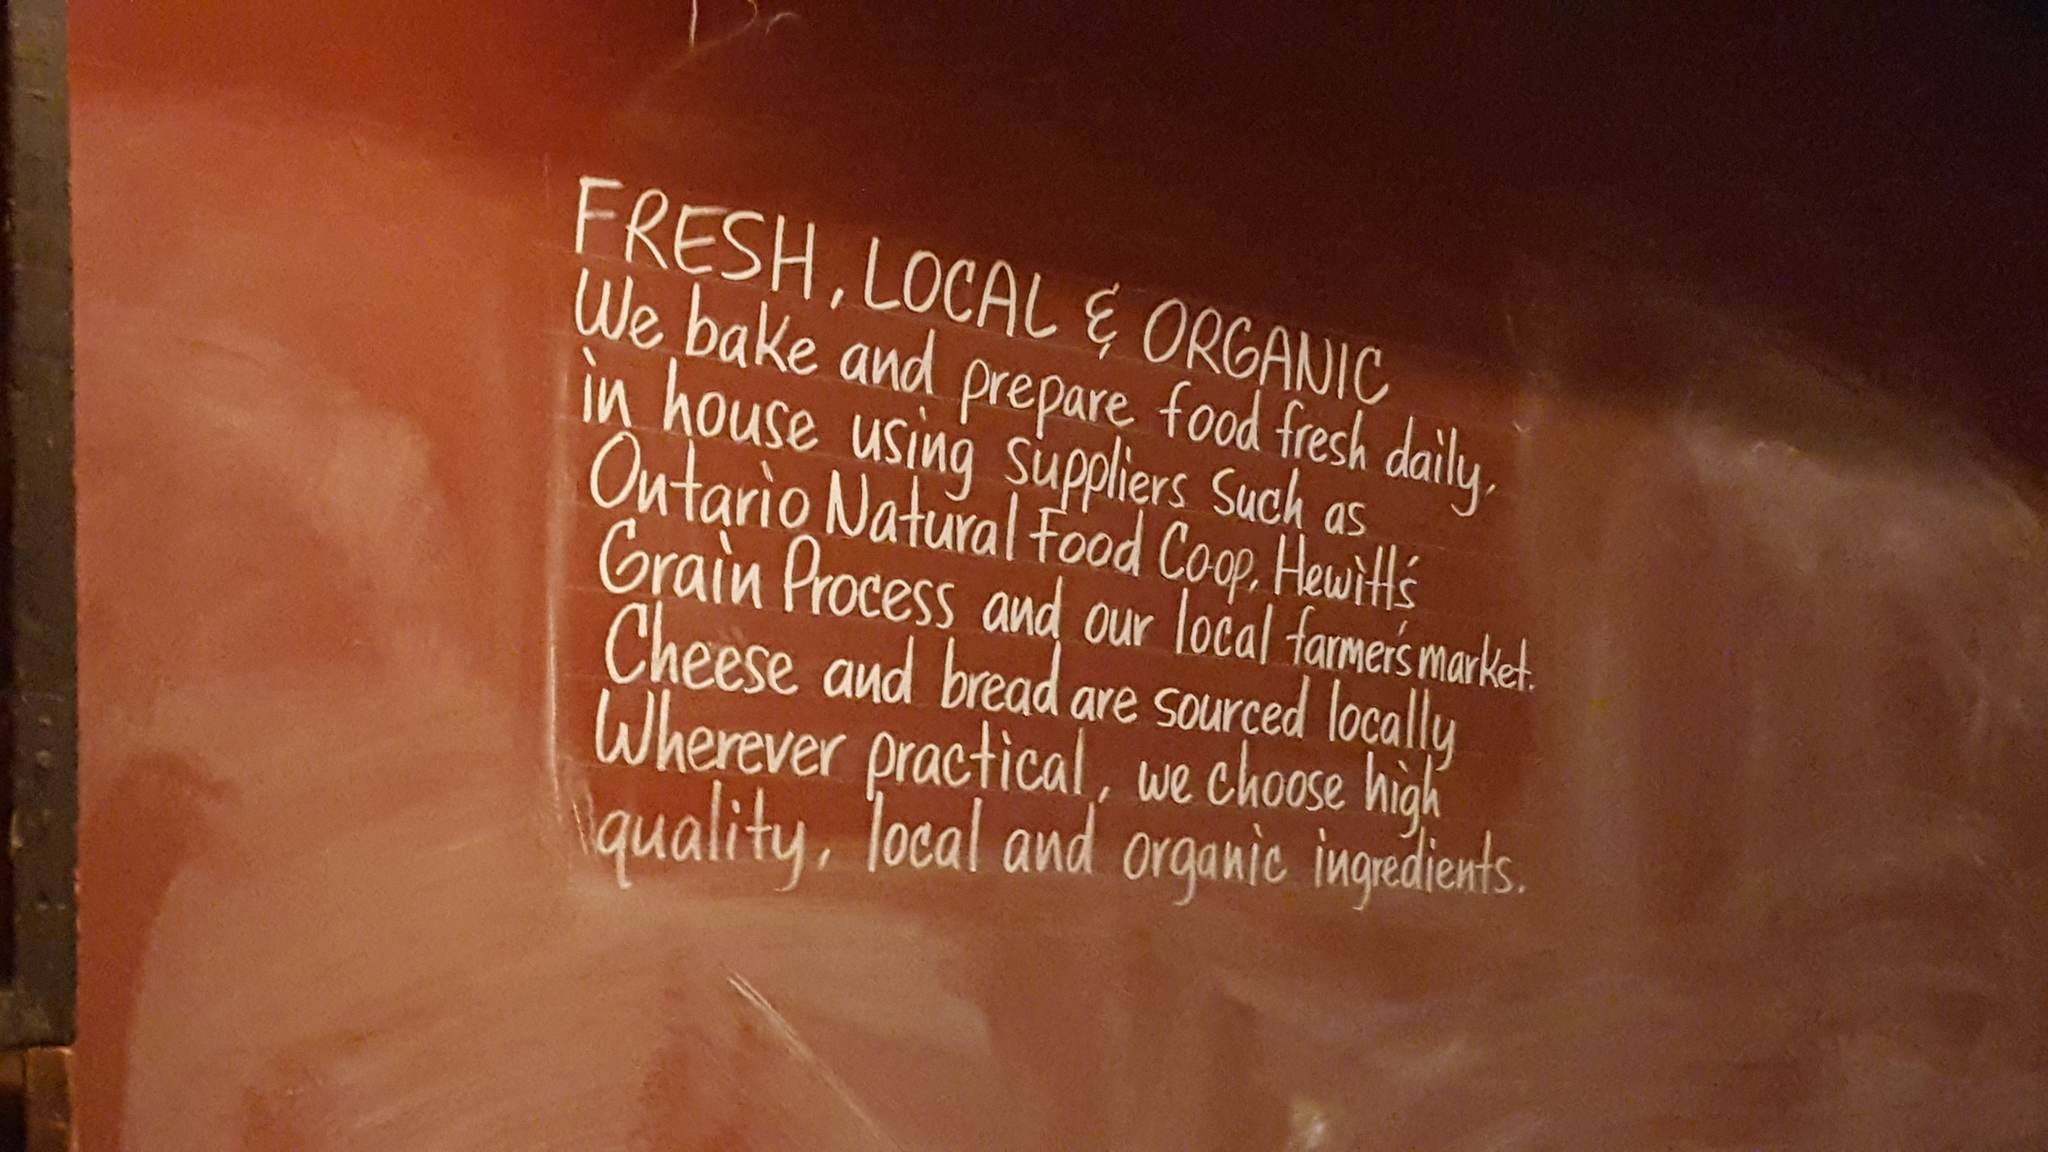 FRESH, LOCAL & ORGANIC
We bake and prepare food fresh daily,
in house using suppliers such as
Ontario Natural Food Co-op, Hewitt's
Grain Process and our local farmer's market.
Cheese and bread are sourced locally
Wherever practical, we choose high
quality, local and organic ingredients.